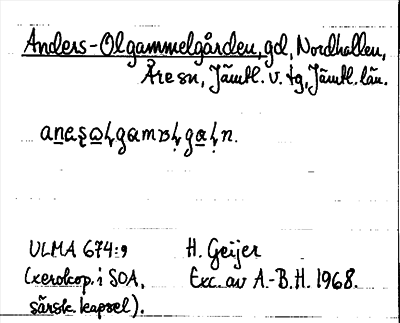 Anders-Olgammelgården, gd, Nordhallen,
Åre sn, Jämtl. v. tg, Jämtl. län.
ULMA 674:9 H. Geijer
(xerokop. i SOA, Exc. av A.-B.H. 1968.
särsk. kapsel).